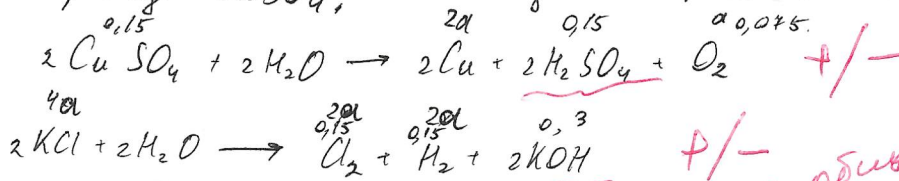 0,15 2a 0,15 a 0,075.
2CuSO₄ + 2H₂O → 2Cu + 2H₂SO₄ + O₂ +/−
4a 2a 0,15 2a 0,15 0,3
2KCl + 2H₂O → Cl₂ + H₂ + 2KOH +/−